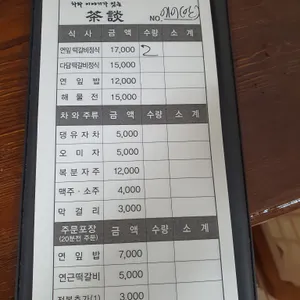 차와 이야기가 있는
茶談
NO.
식 사 금 액 수량 소 계
연잎떡갈비정식 17,000 2
다담떡갈비정식 15,000
연 잎 밥 12,000
해 물 전 15,000
차 와 주 류 금 액 수량 소 계
댕 유 자 차 5,000
오 미 자 5,000
복 분 자 주 12,000
맥주·소주 4,000
막 걸 리 3,000
주문포장 금 액 수량 소 계
(20분전 주문)
연 잎 밥 7,000
연근떡갈비 5,000
전복추가(1) 3,000